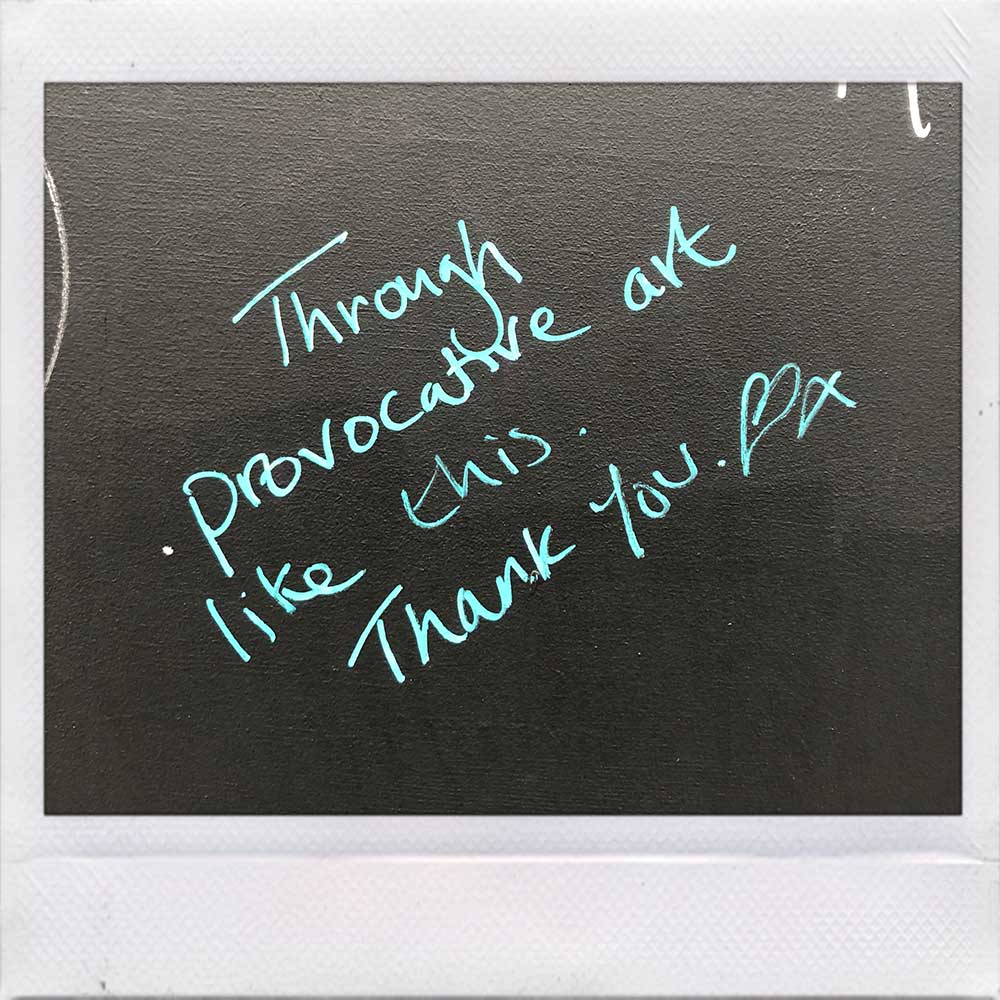 Through
provocative art
like this.
Thank you. ♡x